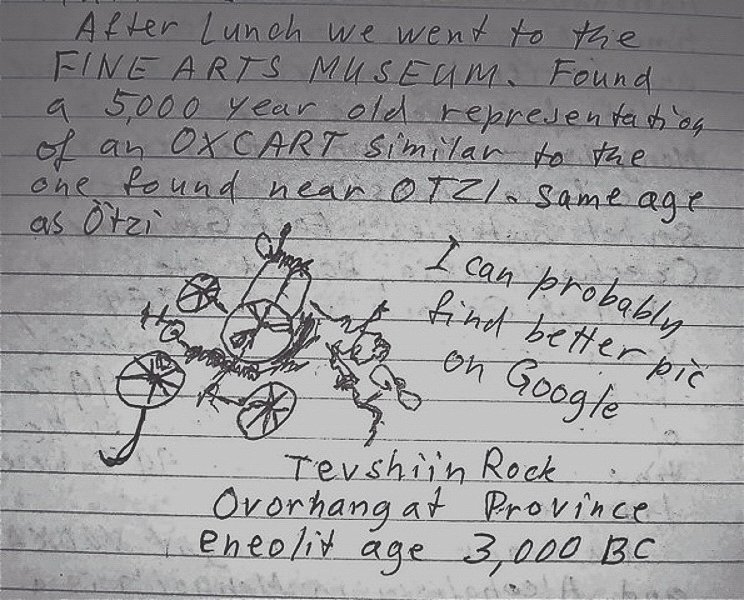 After Lunch we went to the
FINE ARTS MUSEUM. Found
a 5,000 year old representation
of an OXCART similar to the
one found near OTZI. same age
as Ötzi
I can probably
find better pic
on Google
Tevshiin Rock
Ovorhangat Province
eneolit age 3,000 BC